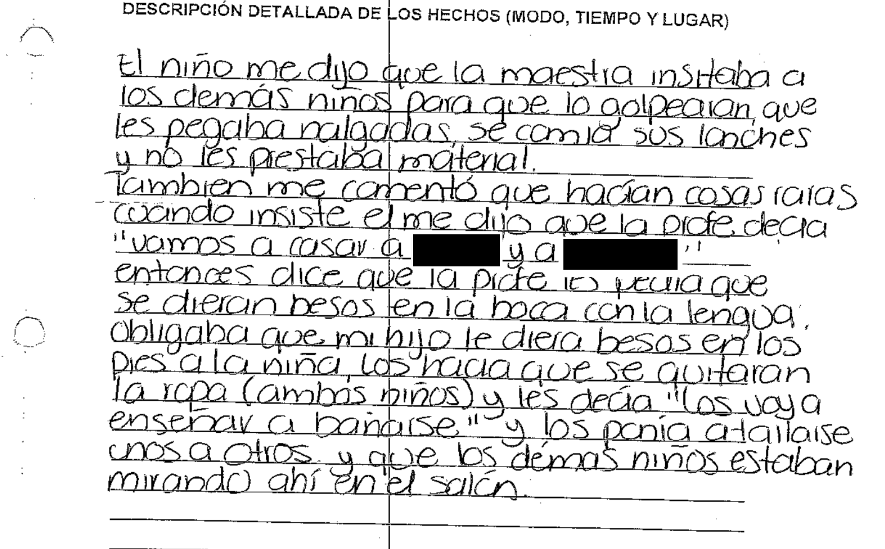 DESCRIPCIÓN DETALLADA DE LOS HECHOS (MODO, TIEMPO Y LUGAR)
El niño me dijo que la maestra insitaba a
los demás niños para que lo golpearan, que
les pegaba nalgadas, se comía sus lonches
y no les prestaba material.
Tambien me comentó que hacían cosas raras
cuando insiste el me dijo que la profe decia
"vamos a casar a y a "
entonces dice que la profe les pedia que
se dieran besos en la boca con la lengua,
Obligaba que mi hijo le diera besos en los
pies a la niña, los hacia que se quitaran
la ropa (ambos niños) y les decía "los voy a
enseñar a bañarse" y los ponía a tallarse
unos a otros y que los demas niños estaban
mirando ahí en el salón.